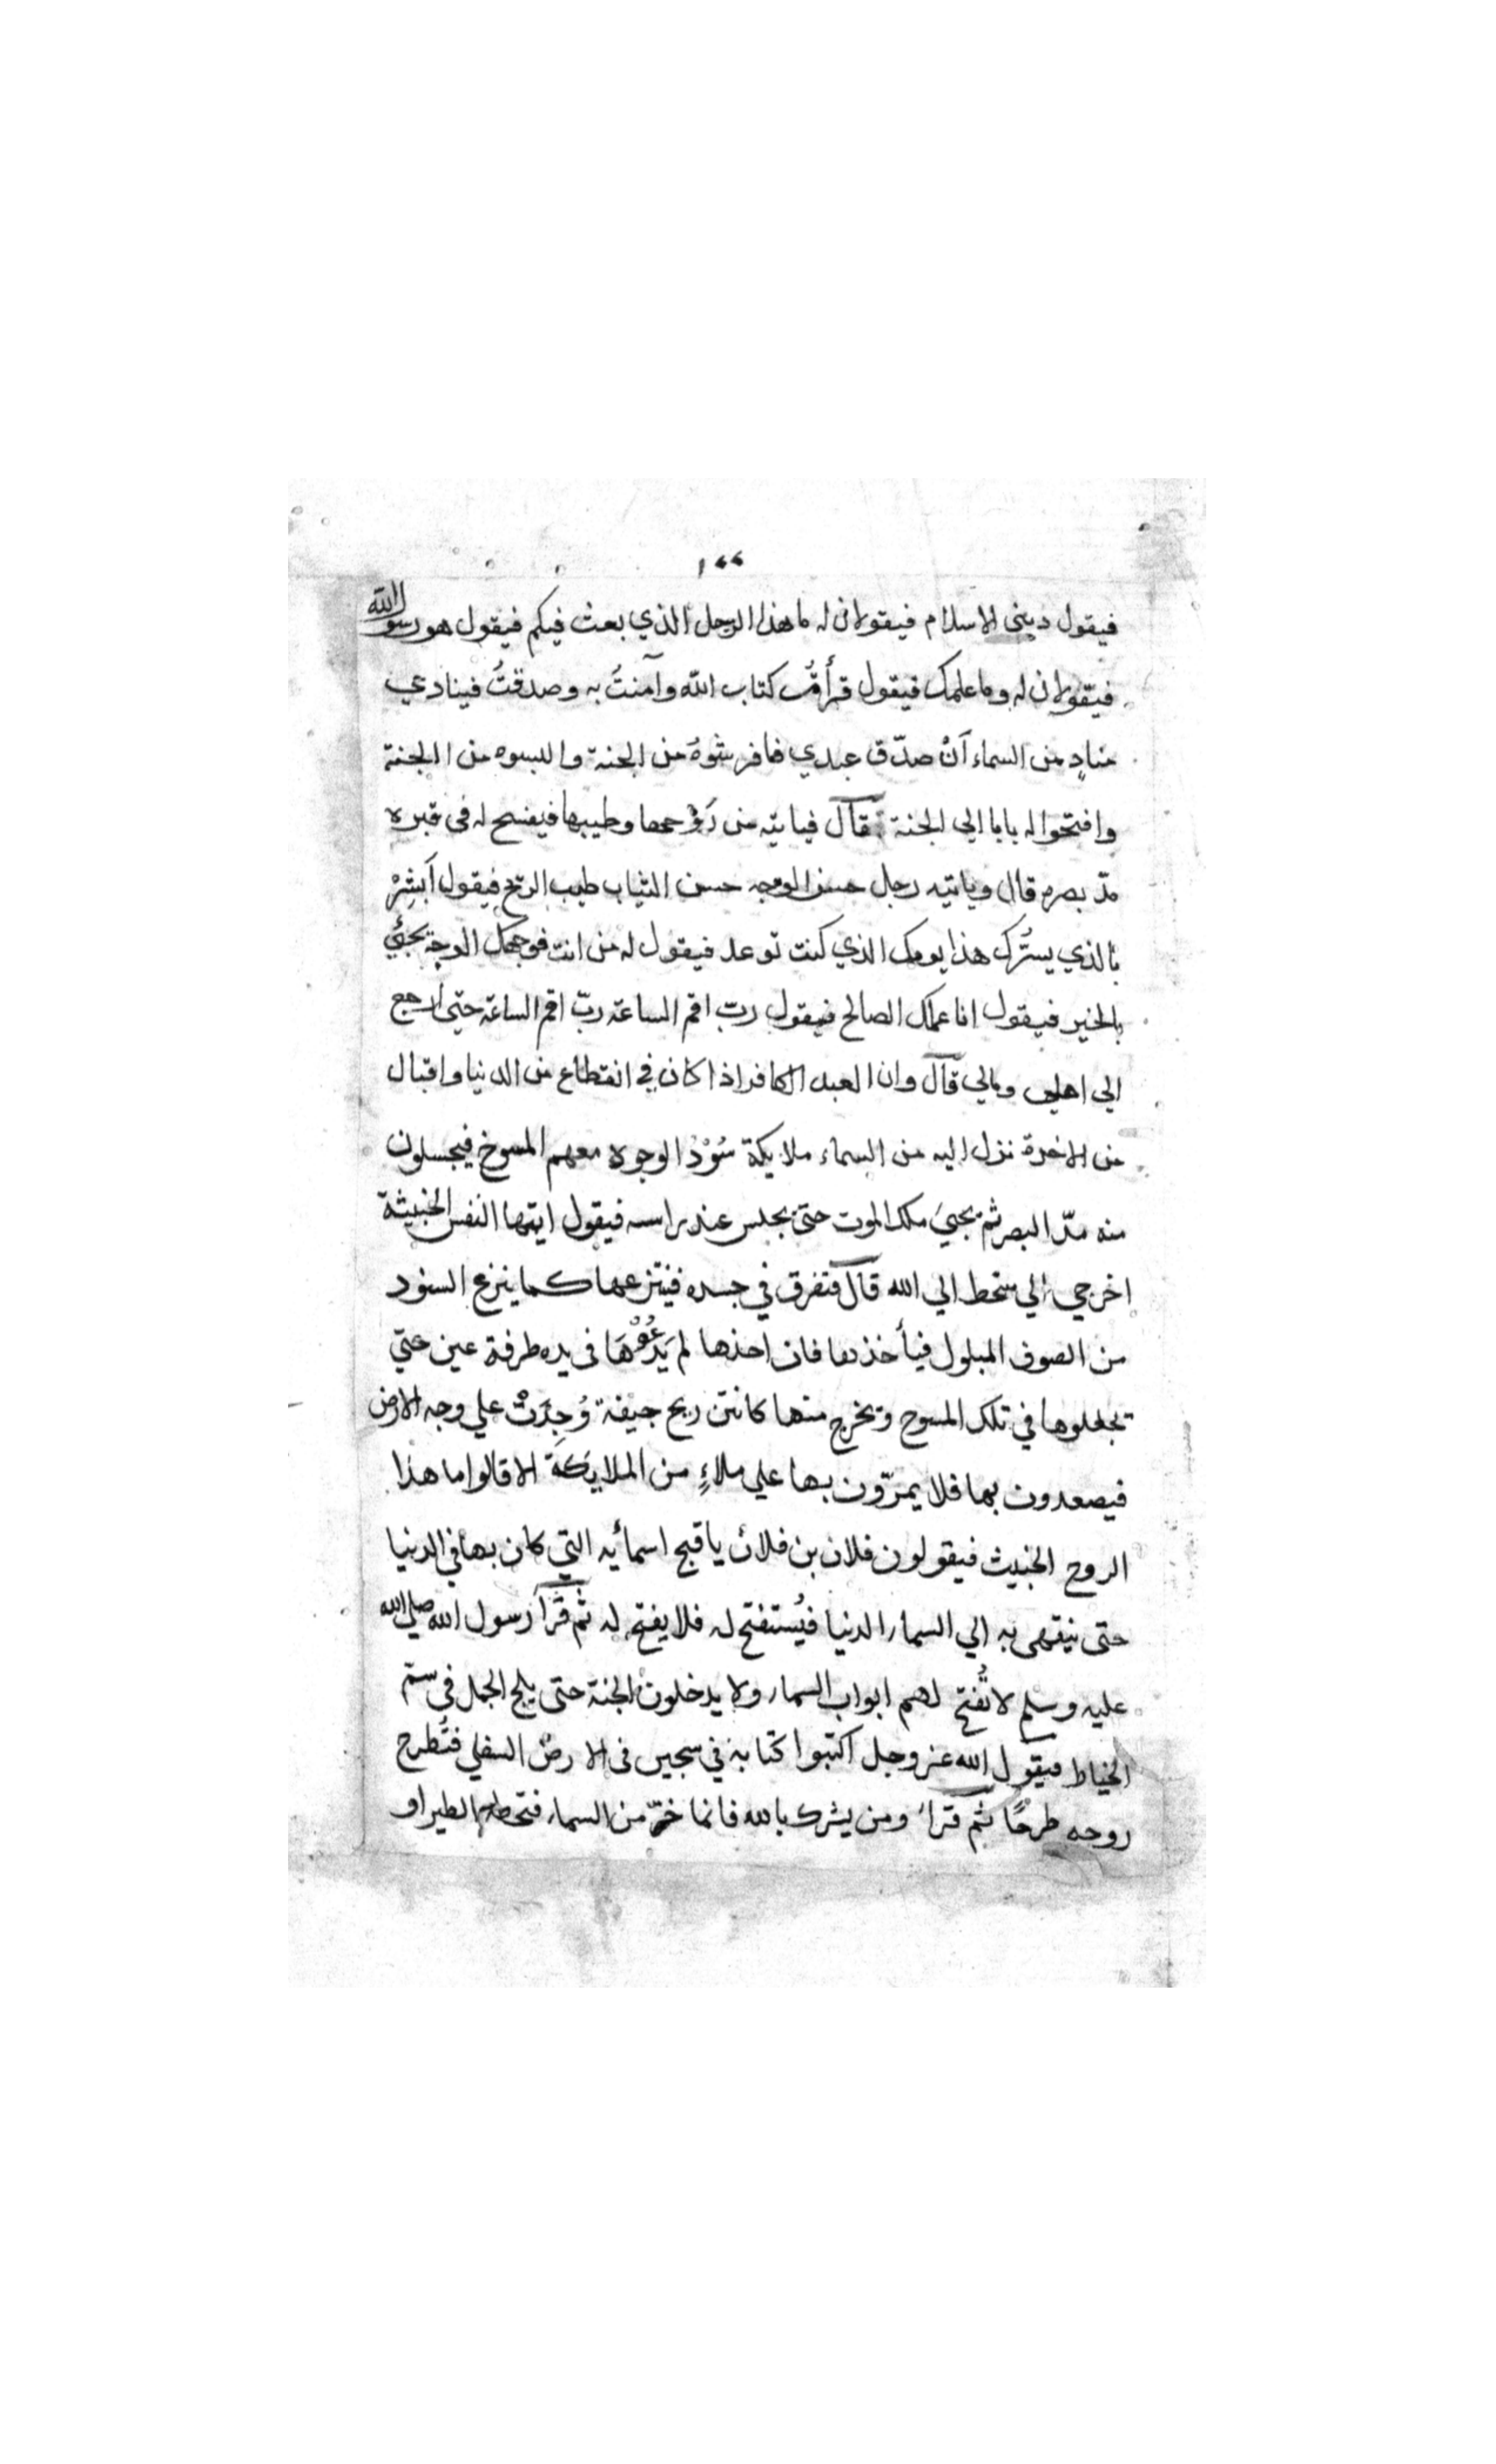 ١٢٢
فيقول ديني الاسلام فيقولان له ما هذا الرجل الذي بعث فيكم فيقول هو رسول الله
فيقولان له وما علمك فيقول قرأتُ كتاب الله وآمنتُ به وصدقتُ فينادي
منادٍ من السماء اَنْ صدّق عبدي فافرشوهُ من الجنة والبسوه من الجنة
وافتحوا له بابا الي الجنة قال فياتيه من رَوْحها وطيبها فيفسح له في قبره
مدّ بصره قال وياتيه رجل حسن الوجه حسن الثياب طيب الريح فيقول اَبشِرْ
بالذي يسُرّك هذا يومك الذي كنت توعد فيقول له من انت فوجهك الوجه يجئُ
بالخير فيقول انا عملك الصالح فيقول ربّ اقم الساعة ربّ اقم الساعة حتي ارجع
الي اهلي ومالي قال وان العبد الكافر اذا كان في انقطاع من الدنيا واقبال
من الاخرة نزل اليه من السماء ملايكة سُوْدُ الوجوه معهم المسوخ فيجلسون
منه مدّ البصر ثم يجئ ملك الموت حتي يجلس عند راسه فيقول ايتها النفس الخبيثة
اخرجي الي سخط الي الله قال فتفرق في جسده فينتزعها كما ينزع السفود
من الصوف المبلول فيأخذها فان اخذها لم يَدَعُوْهَا في يده طرفة عين حتي
تجعلوها في تلك المسوح وتخرج منها كانتن ريح جيفة وُجِدَتْ علي وجه الارض
فيصعدون بها فلا يمرّون بها علي ملاءٍ من الملايكَة الا قالوا ما هذا
الروح الخبيث فيقولون فلان بن فلان ياقبح اسمأيه التي كان بها في الدنيا
حتي ينتهي به الي السماء الدنيا فيُستفتح له فلا يفتح له ثم قرأ رسول الله صلي الله
عليه وسلم لا تُفتح لهم ابواب السماء ولا يدخلون الجنة حتي يلج الجمل في سمّ
الخياط فيقول الله عز وجل اكتبوا كتابه في سجين في الارض السفلي فتُطرح
روحه طرحًا ثم قرأ ومن يشرك بالله فانما خرّ من السماء فتخطفه الطير او